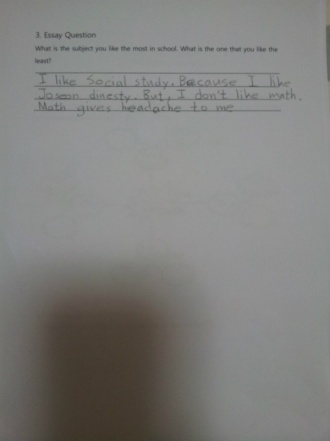 3. Essay Question
What is the subject you like the most in school. What is the one that you like the
least?
I like Social study. Because I like
Joseon dinesty. But, I don't like math.
Math gives headache to me